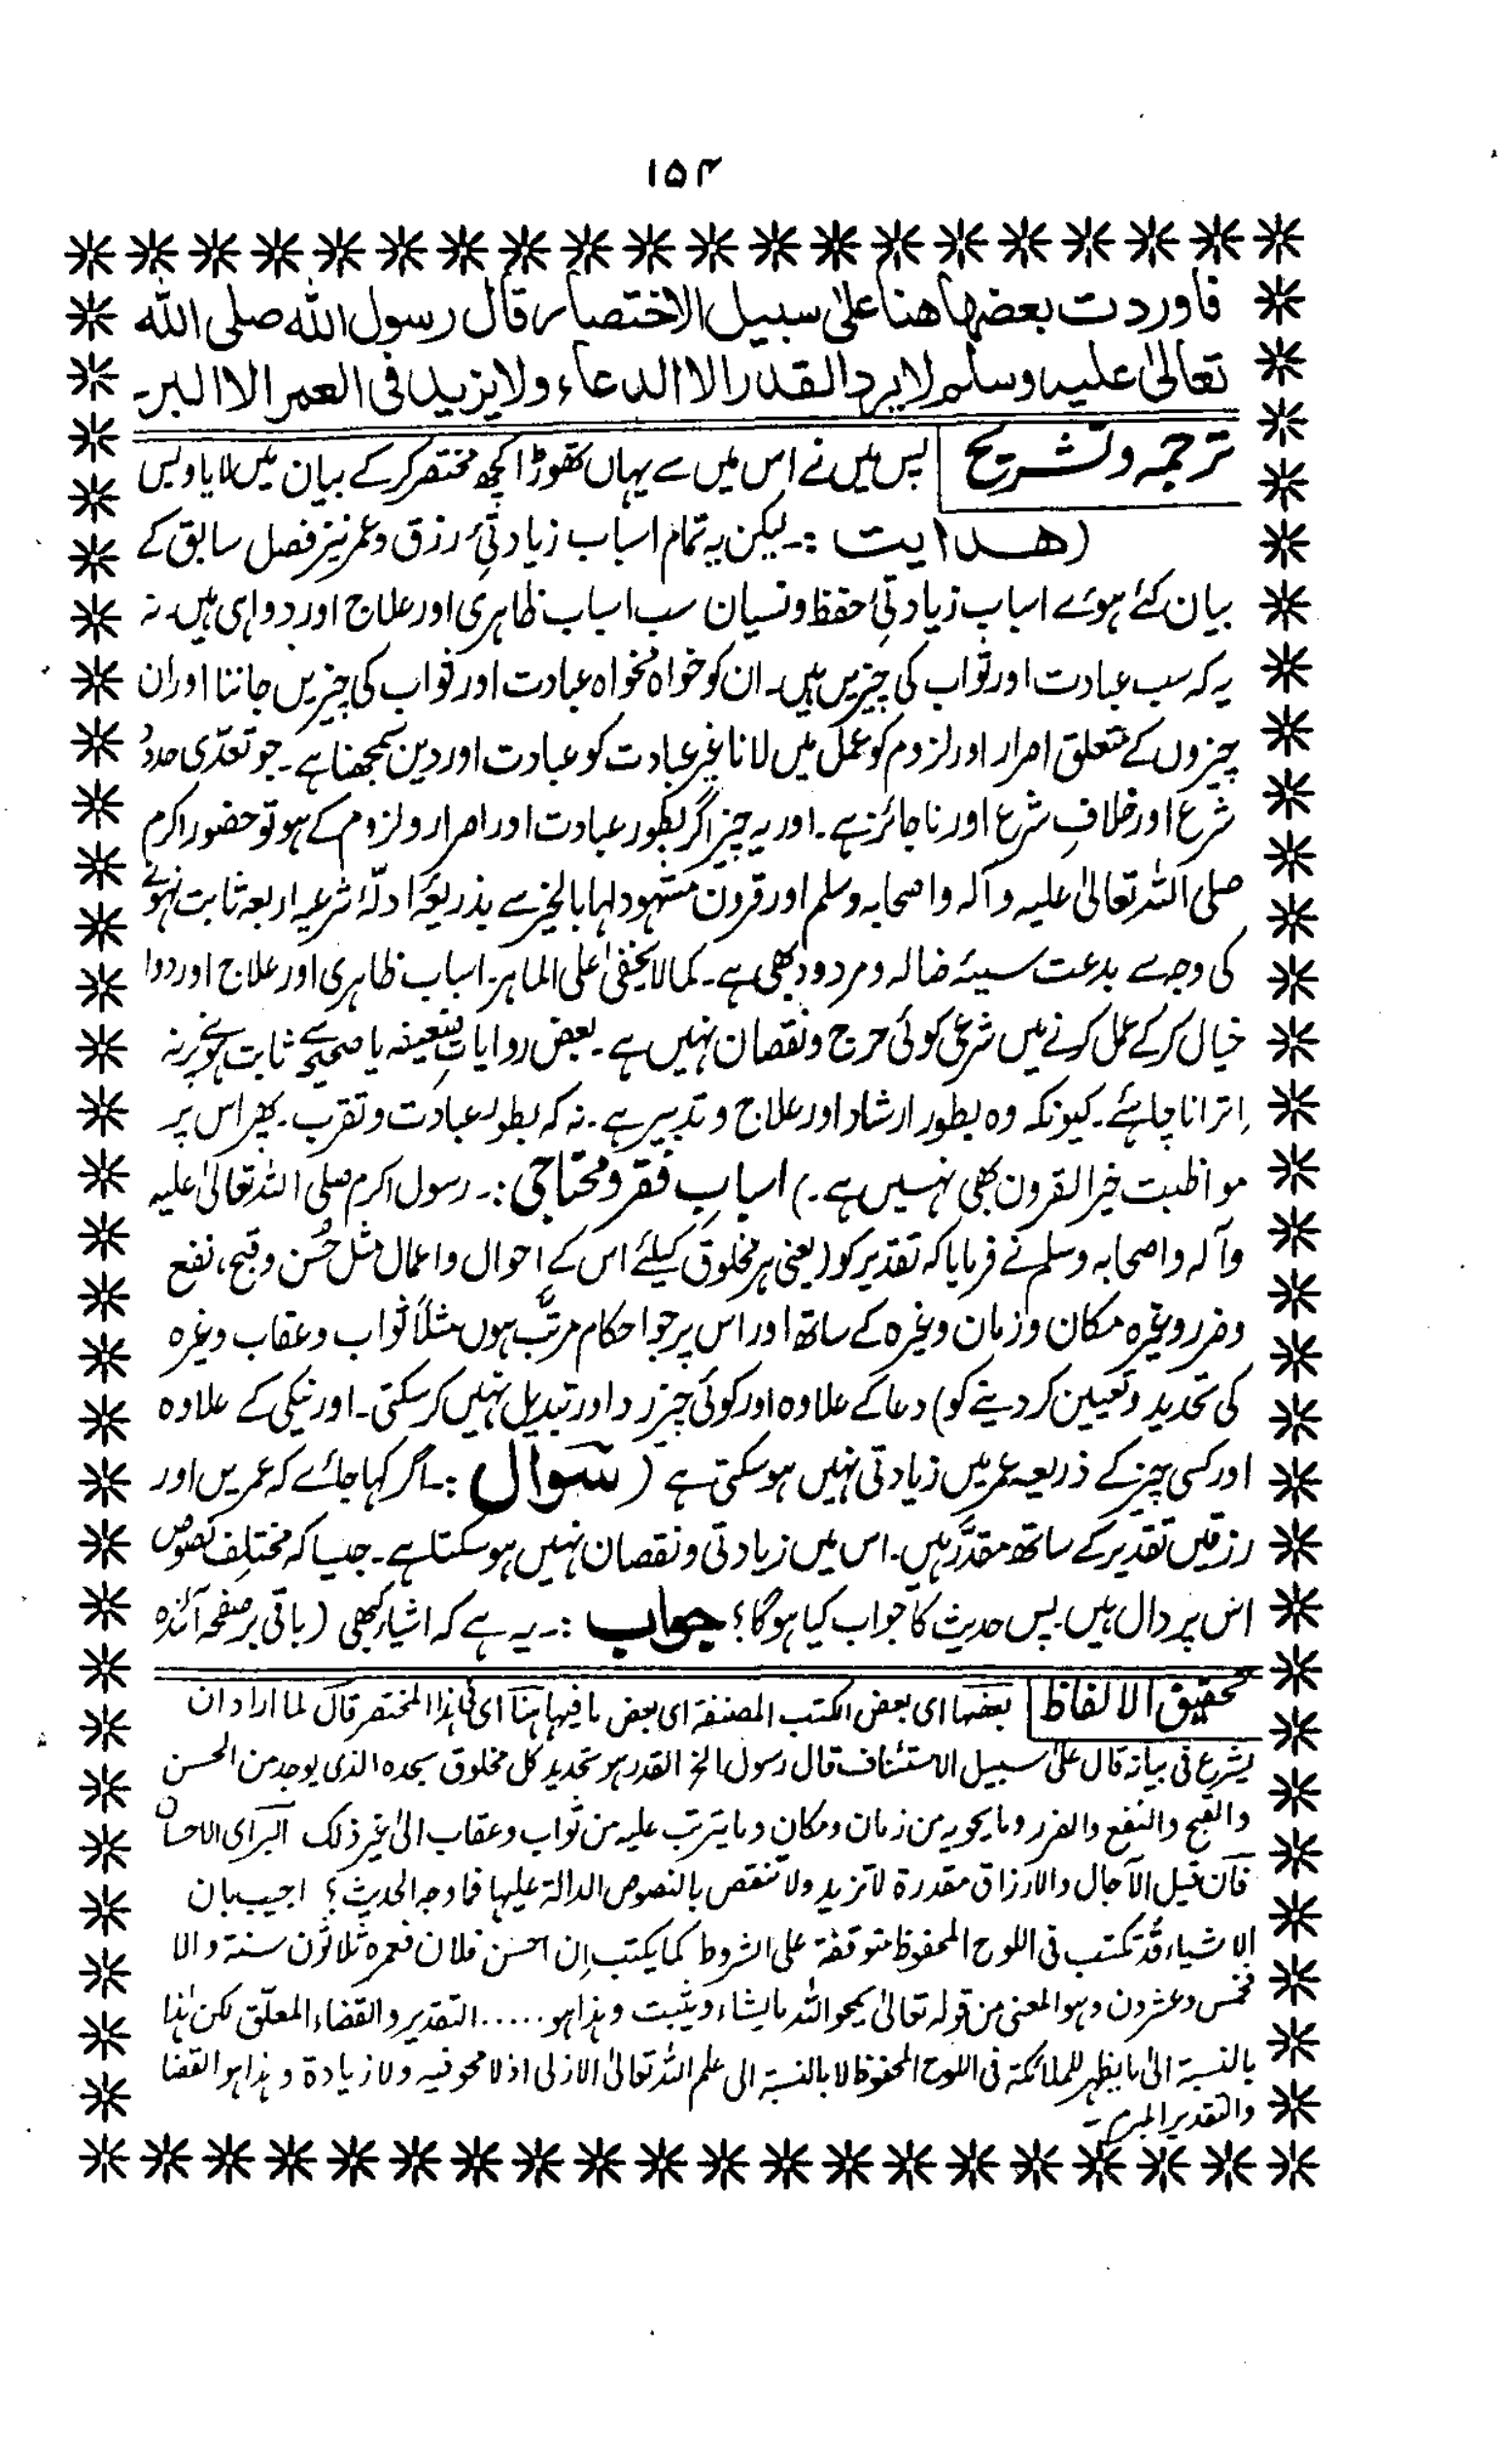 ۱۵۴
فاوردت بعضها هنا علیٰ سبیل الاختصار قال رسول الله صلی الله
تعالیٰ علیه وسلم لا یرد القدر الا الدعاء ولا یزید فی العمر الا البر۔
ترجمہ وتشریح پس میں نے اس میں سے یہاں تھوڑا کچھ مختصر کرکے بیان میں لایا ویس
(ھدایت :۔ لیکن یہ تمام اسباب زیادتیٔ رزق وعمر نیز فصل سابق کے
بیان کئے ہوئے اسباب زیادتیٔ حفظ ونسیان سب اسباب ظاہری اور علاج اور دوا ہی ہیں۔ نہ
یہ کہ سب عبادت اور ثواب کی چیزیں ہیں۔ ان کو خواہ نخواہ عبادت اور ثواب کی چیزیں جاننا اور ان
چیزوں کے متعلق اصرار اور لزوم کو عمل میں لانا غیر عبادت کو عبادت اور دین سمجھنا ہے۔ جو تعدّی حدودِ
شرع اور خلافِ شرع اور ناجائز ہے۔ اور یہ چیز اگر بطور عبادت اور اصرار ولزوم کے ہو تو حضور اکرم
صلی اللہ تعالیٰ علیہ وآلہ واصحابہ وسلم اور قرون مشہود لہا بالخیر سے بذریعۂ ادلّۂ شرعیہ اربعہ ثابت نہونے
کی وجہ سے بدعت سیئہ ضالہ ومردود بھی ہے۔ کما لا یخفیٰ علی الماہر۔ اسباب ظاہری اور علاج اور دوا
خیال کرکے عمل کرنے میں شرعی کوئی حرج ونقصان نہیں ہے۔ بعض روایاتِ ضعیفہ یا صحیحہ سے ثابت ہونے پر نہ
اِترانا چاہئے۔ کیونکہ وہ بطور ارشاد اور علاج وتدبیر ہے۔ نہ کہ بطور عبادت وتقرب۔ پھر اس پر
مواظبت خیر القرون بھی نہیں ہے۔) اسباب فقر ومحتاجی :۔ رسول اکرم صلی اللہ تعالیٰ علیہ
وآلہ واصحابہ وسلم نے فرمایا کہ تقدیر کو (یعنی ہر مخلوق کیلئے اس کے احوال واعمال مثل حُسن وقبح، نفع
وضرر وغیرہ مکان وزمان وغیرہ کے ساتھ اور اس پر جو احکام مرتَّب ہوں مثلاً ثواب وعقاب وغیرہ
کی تحدید وتعیین کر دینے کو) دعا کے علاوہ اور کوئی چیز رد اور تبدیل نہیں کر سکتی۔ اور نیکی کے علاوہ
اور کسی چیز کے ذریعہ عمر میں زیادتی نہیں ہو سکتی ہے (سوال :۔ اگر کہا جائے کہ عمریں اور
رزقیں تقدیر کے ساتھ مقدَّر ہیں۔ اس میں زیادتی ونقصان نہیں ہو سکتا ہے۔ جیسا کہ مختلف نصوص
اس پر دال ہیں۔ پس حدیث کا جواب کیا ہوگا؟ جواب :۔ یہ ہے کہ اشیاء کبھی (باقی بر صفحہ آئندہ
تحقیق الالفاظ بعضہا ای بعض الکتب المصنفة ای بعض ما فیہا ہنا ای فی ہذا المختصر قال لما اراد ان
یشرع فی بیانہ قال علیٰ سبیل الاستئناف قال رسول الخ القدر ہو تحدید کل مخلوق بحدہ الذی یوجد من الحسن
والقبح والنفع والضرر وما یحویہ من زمان ومکان وما یترتب علیہ من ثواب وعقاب الیٰ غیر ذلک البر ای الاحسان
فان قیل الآجال والارزاق مقدرة لا تزید ولا تنقص بالنصوص الدالة علیہا فما وجہ الحدیث؟ اجیب بان
الاشیاء قد تکتب فی اللوح المحفوظ متوقفة علی الشروط کما یکتب اِن احسن فلان فعمرہ ثلاثون سنة والا
فخمس وعشرون وہو المعنی من قولہ تعالیٰ یمحو اللہ ما یشاء ویثبت وہذا ہو ..... التقدیر والقضاء المعلّق لکن ہٰذا
بالنسبة الیٰ ما یظہر للملائکة فی اللوح المحفوظ لا بالنسبة الی علم اللہ تعالیٰ الازلی اذ لا محو فیہ ولا زیادة وہذا ہو القضا
والتقدیر المبرم۔